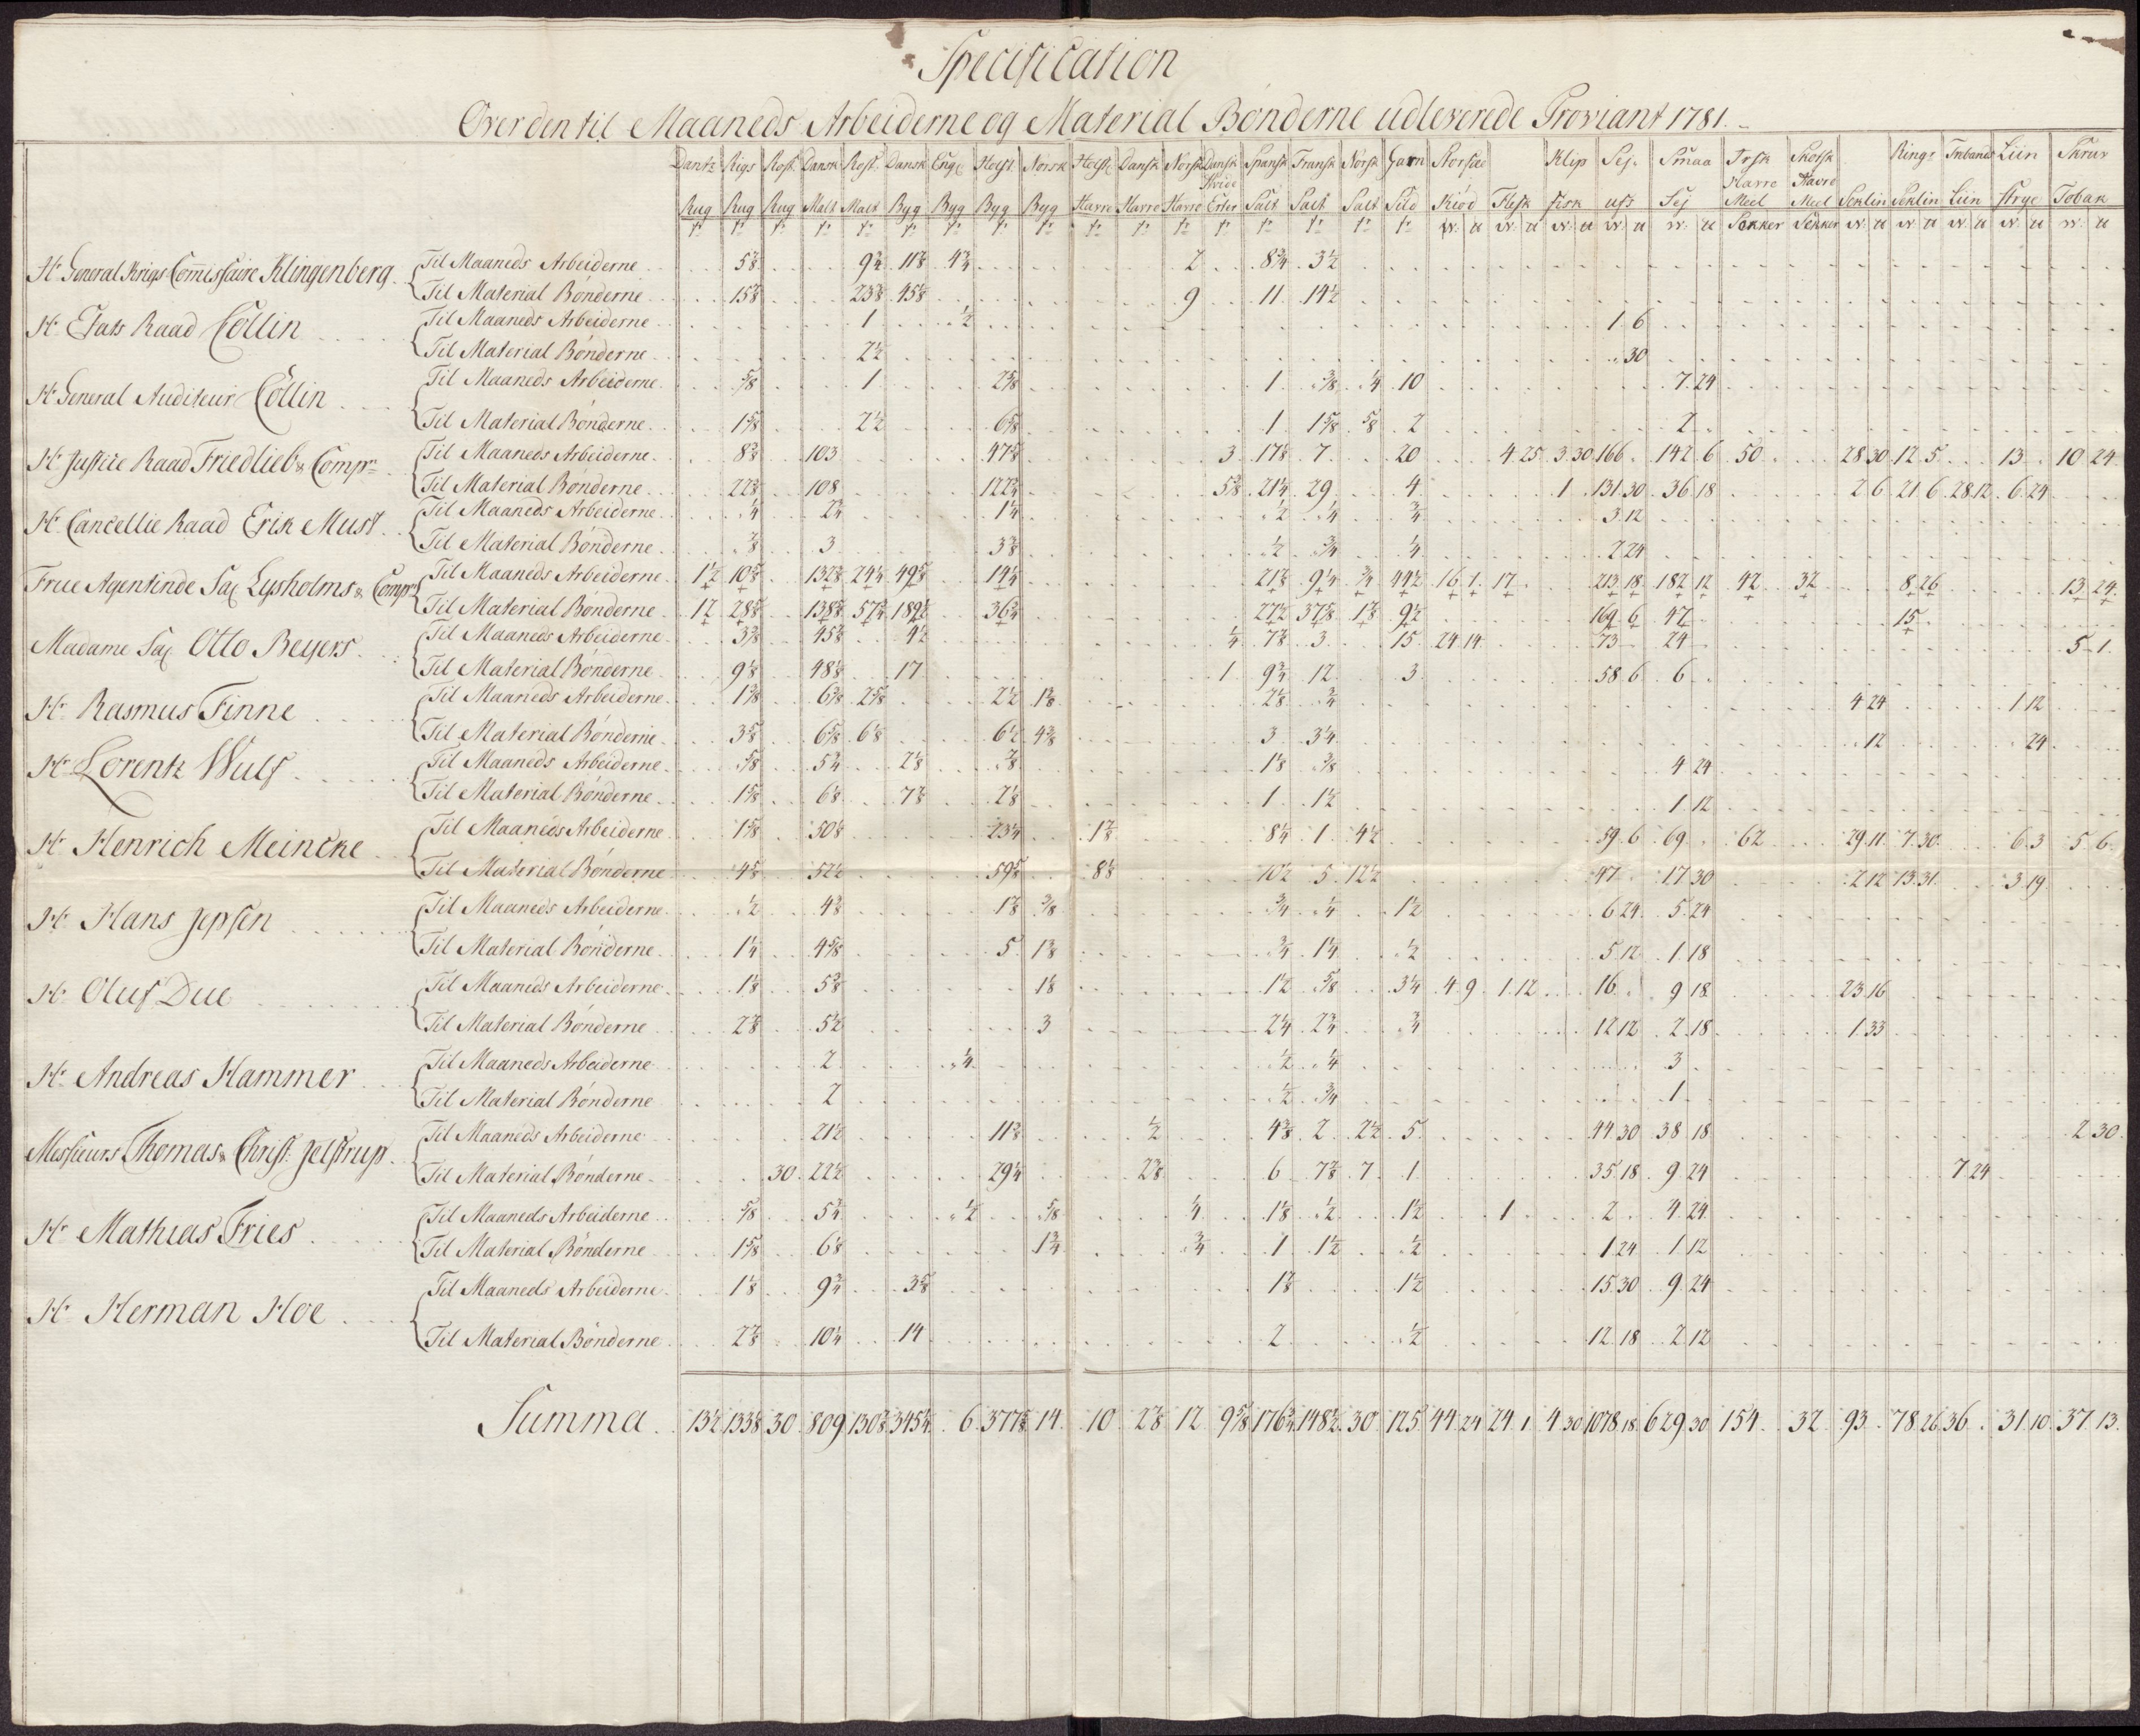 Specification
Over den til Maaneds Arbeiderne og Material Bønderne udleverede Proviant 1781.
Dantz Rigs Rost. Dansk Rost. Dansk Engl Holst Norsk Holst Dansk Norsk Dansk Spansk Fransk Norsk Garn Klip Sej. Smaa Irsk Skotsk Rings Inbands Liin Skrur
Hvide Havre Havre
Rug Rug Rug Malt Malt Byg Byg Byg Byg Havre Havre Havre Erter Salt Salt Salt Sild Kiød Flesk ufr Sej Meel Meel Seklin Seklin Liin Strye Tobak
Sekker Sekker
Hr. General Krigs Commissaire Klingenberg. Til Maaneds Arbeiderne 5 3/8 9 3/4 11 3/8 4 3/4 2 8 3/4 3 1/2
Til Material Bønderne 15 3/8 23 3/8 45 3/8 9 11 14 1/2
Hr. Etats Raad Collin Til Maaneds Arbeiderne 1 1/2 1 6
Til Material Bønderne 2 1/2 30
Hr. General Auditeur Collin Til Maaneds Arbeiderne 5/8 1 2 5/8 1 3/8 1/4 10 7 24
Til Material Bønderne 1 5/8 2 1/2 6 5/8 1 1 5/8 5/8 2 2
Hr. Justice Raad Friedlieb & Compe Til Maaneds Arbeiderne 8 3/8 103 47 3/8 3 17 1/8 7 20 4 25 3 30 166 142 6 50 28 30 12 5 13 10 24
Til Material Bønderne 22 3/8 108 122 3/4 5 3/8 21 1/4 29 4 1 131 30 36 18 2 6 21 6 28 12 6 24
Hr. Cancellie Raad Erik Must Til Maaneds Arbeiderne 1/4 2 3/4 1 1/4 1/2 1/4 3/4 3 12
Til Material Bønderne 7/8 3 3 3/8 1/2 3/4 1/4 2 24
Frue Agentinde Sal Lysholms & Compe Til Maaneds Arbeiderne 1 1/2 10 5/8 132 3/8 24 1/4 49 5/8 14 1/4 21 3/8 9 1/4 3/4 44 1/2 16 1 17 213 18 182 12 42 32 8 26 13 24
Til Material Bønderne 12 28 5/8 138 5/8 57 3/4 189 1/2 36 3/4 27 1/2 37 5/8 1 7/8 9 1/2 169 6 47 15
Madame Sal Otto Beyers Til Maaneds Arbeiderne 3 3/8 45 3/8 4 1/2 1/4 7 3/8 3 15 24 14 73 24 5 1
Til Material Bønderne 9 1/8 48 1/8 17 1 9 3/4 12 3 58 6 6
Hr. Rasmus Finne Til Maaneds Arbeiderne 1 3/8 6 3/8 2 5/8 2 1/2 1 3/8 2 1/8 3/4 4 24 1 12
Til Material Bønderne 3 5/8 6 5/8 6 1/8 6 1/2 4 3/8 3 3 1/4 12 24
Hr. Lorentz Wulf Til Maaneds Arbeiderne 5/8 5 3/4 2 1/8 7/8 1 1/8 3/8 4 24
Til Material Bønderne 1 5/8 6 1/8 7 7/8 2 1/8 1 1 1/2 1 12
Hr. Henrich Meincke Til Maaneds Arbeiderne 1 5/8 50 1/8 23 1/4 1 7/8 8 1/4 1 4 1/2 59 6 69 62 29 11 7 30 6 3 5 6
Til Material Bønderne 4 5/8 52 1/2 59 5/8 8 1/8 10 1/2 5 12 1/2 47 17 30 2 12 13 31 3 19
Hr. Hans Jepsen Til Maaneds Arbeiderne 1/2 4 3/8 1 7/8 3/8 3/4 1/4 1 1/2 6 24 5 24
Til Material Bønderne 1 1/4 4 5/8 5 1 3/8 3/4 1 1/4 1/2 5 12 1 18
Hr. Oluf Due Til Maaneds Arbeiderne 1 1/8 5 3/8 1 1/8 1 1/2 5/8 3 1/4 4 9 1 12 16 9 18 23 16
Til Material Bønderne 2 7/8 5 1/2 3 2 1/4 2 3/4 3/4 12 12 2 18 1 33
Hr. Andreas Hammer Til Maaneds Arbeiderne 2 1/4 1/2 1/4 3
Til Material Bønderne 2 1/2 3/4 1
Messieurs Thomas & Christ. Jelstrup Til Maaneds Arbeiderne 21 1/2 11 3/8 1/2 4 3/8 2 2 1/2 5 44 30 38 18 2 30
Til Material Bønderne 30 22 1/2 29 1/4 2 3/8 6 7 7/8 7 1 35 18 9 24 7 24
Hr. Mathias Fries Til Maaneds Arbeiderne 5/8 5 3/4 1/2 5/8 1/4 1 1/8 1/2 1 1/2 1 2 4 24
Til Material Bønderne 1 5/8 6 1/8 1 3/4 3/4 1 1 1/2 1/2 1 24 1 12
Hr. Herman Hoe Til Maaneds Arbeiderne 1 1/8 9 3/4 3 5/8 1 7/8 1 1/2 15 30 9 24
Til Material Bønderne 2 7/8 10 1/4 14 2 1/2 12 18 2 12
Summa 13 1/2 133 1/8 30 809 130 7/8 345 1/4 6 377 7/8 14 10 2 7/8 12 9 5/8 176 3/4 148 1/2 30 125 44 24 24 1 4 30 1078 18 629 30 154 32 93 78 26 36 31 10 37 13